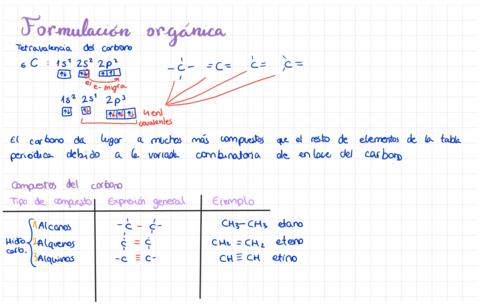 Formulación orgánica
Tetravalencia del carbono
6 C : 1s² 2s² 2p²
e⁻ migra
1s² 2s¹ 2p³
4 enl
covalentes
-C- =C= C= C≡
El carbono da lugar a muchos más compuestos que el resto de elementos de la tabla
periodica debido a la variada combinatoria de enlace del carbono
Compuestos del carbono
Tipo de compuesto Expresión general Ejemplo
Hidro
carb.
1 Alcanos -C-C- CH₃-CH₃ etano
2 Alquenos C=C CH₂=CH₂ eteno
3 Alquinos -C≡C- CH≡CH etino